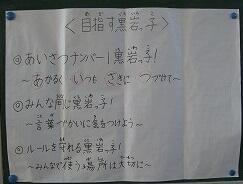 ＜目指す黒岩っ子＞
◎あいさつナンバー1黒岩っ子!
～あかるく いつも さきに つづけて～
◎みんな同じ黒岩っ子!
～言葉づかいに気をつけよう～
◎ルールを守れる黒岩っ子!
～みんなで使う場所は大切に～